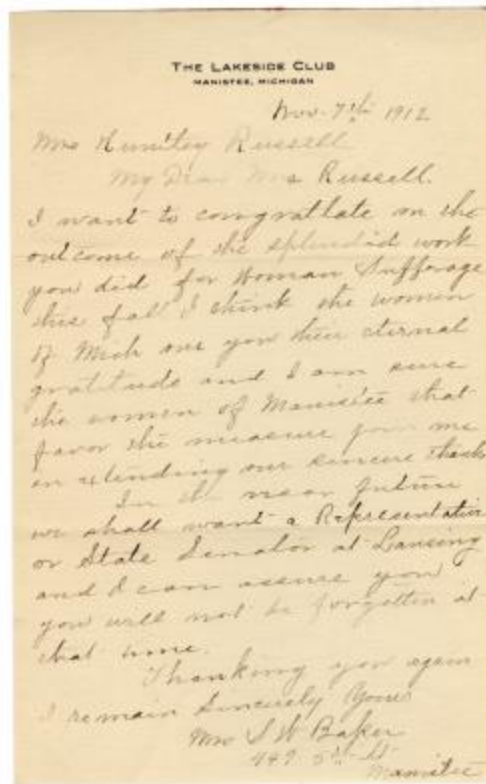 THE LAKESIDE CLUB
MANISTEE, MICHIGAN
Nov. 7th 1912
Mrs Huntley Russell
My Dear Mrs Russell.
I want to congratlate on the
outcome of the splendid work
you did for Woman Sufferage
this fall I think the women
of Mich owe you their eternal
gratitude and I am sure
the women of Manistee that
favor the measure join me
in extending our sincere thanks
In the near future
we shall want a Representative
or State Senator at Lansing
and I can assure you
you will not be forgotten at
that time.
Thanking you again
I remain Sincerely Yours
Mrs S W Baker
449 5th St
Manistee